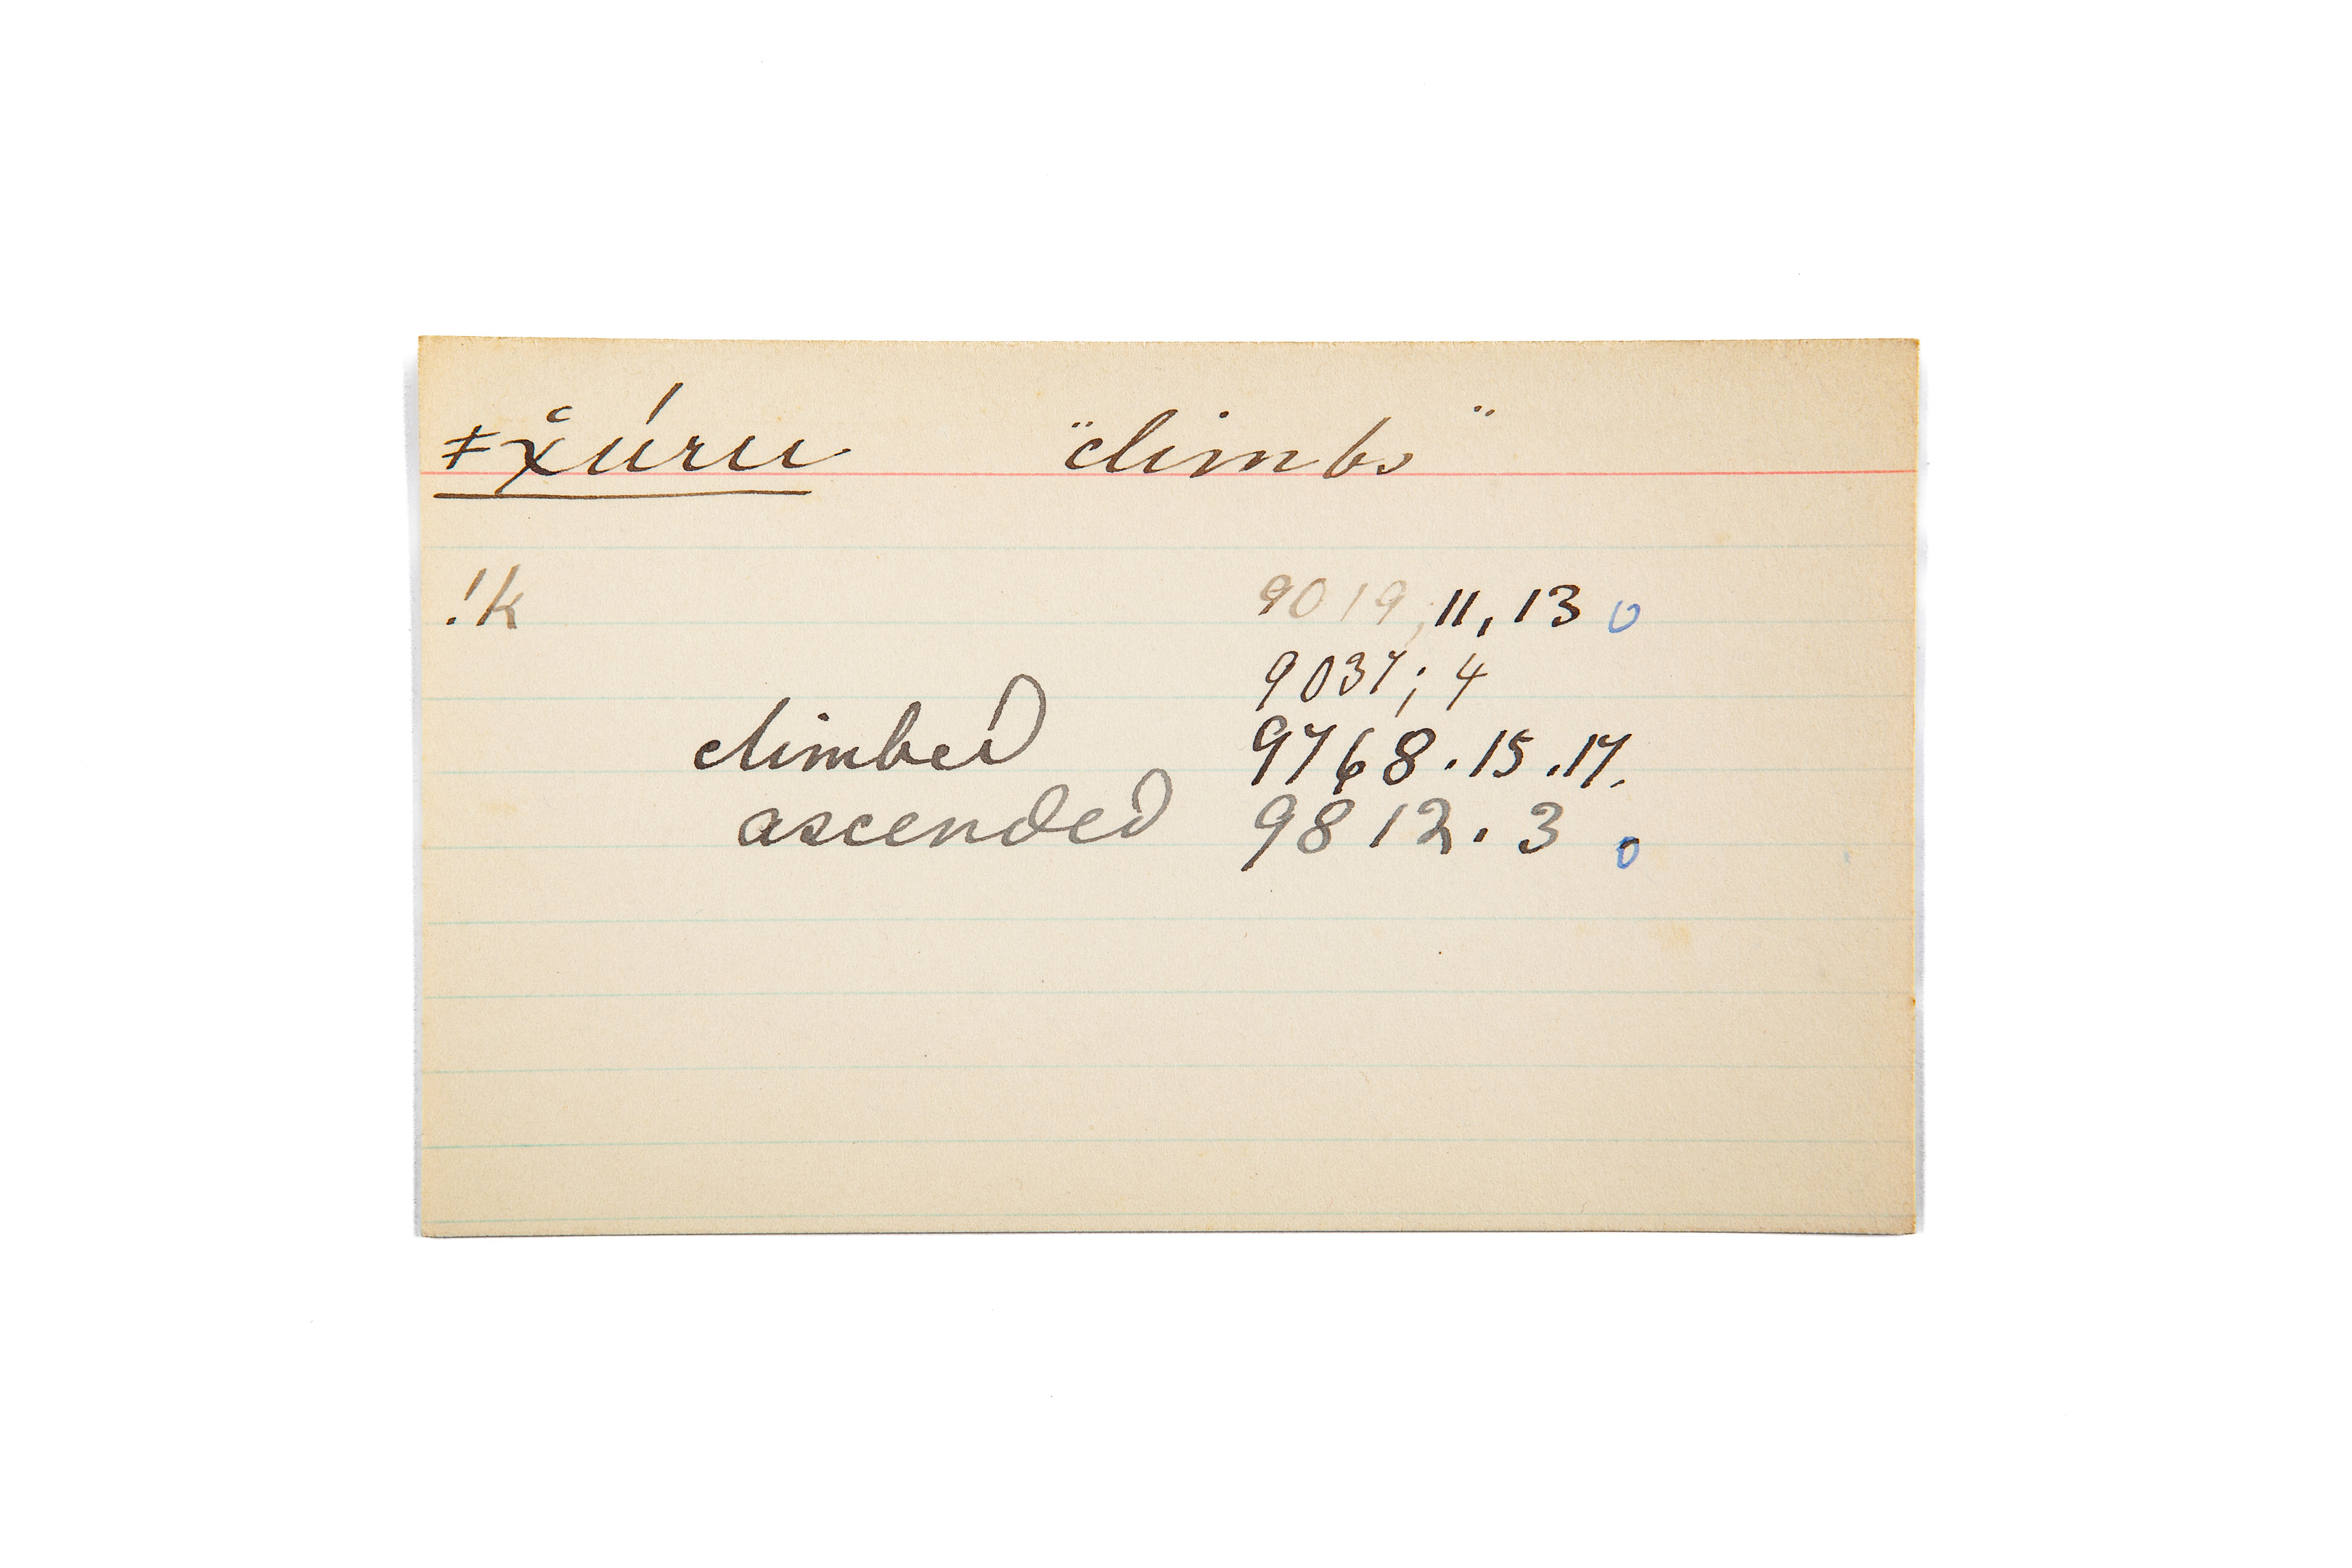 ǂx̆úru "climbs"
!k 9019; 11, 13 0
9037; 4
climbed 9768 . 15 . 17.
ascended 9812 . 3 0